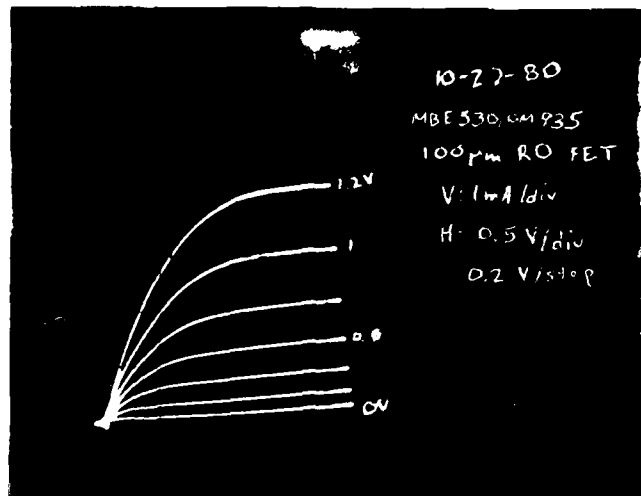 10-27-80
MBE 530, GM 935
100μm RO FET
V: 1mA/div
H: 0.5 V/div
0.2 V/step
1.2V
1
0.6
0V